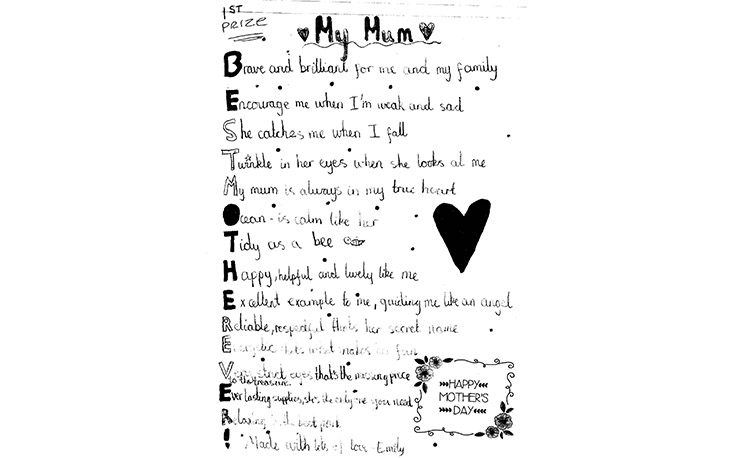 1ST
PRIZE
My Mum
Brave and brilliant for me and my family
Encourage me when I'm weak and sad
She catches me when I fall
Twinkle in her eyes when she looks at me
My mum is always in my true heart
Ocean - is calm like her
Tidy as a bee
Happy, helpful and lively like me
Excellent example to me, guiding me like an angel
Reliable, respectful that's her secret name
Energetic that's what makes fun
eyes that's the missing piece
to the treasure
Everlasting supplies, she's the only one you need
Relaxing is the best part
! Made with lots of love - Emily
HAPPY
MOTHER'S
DAY